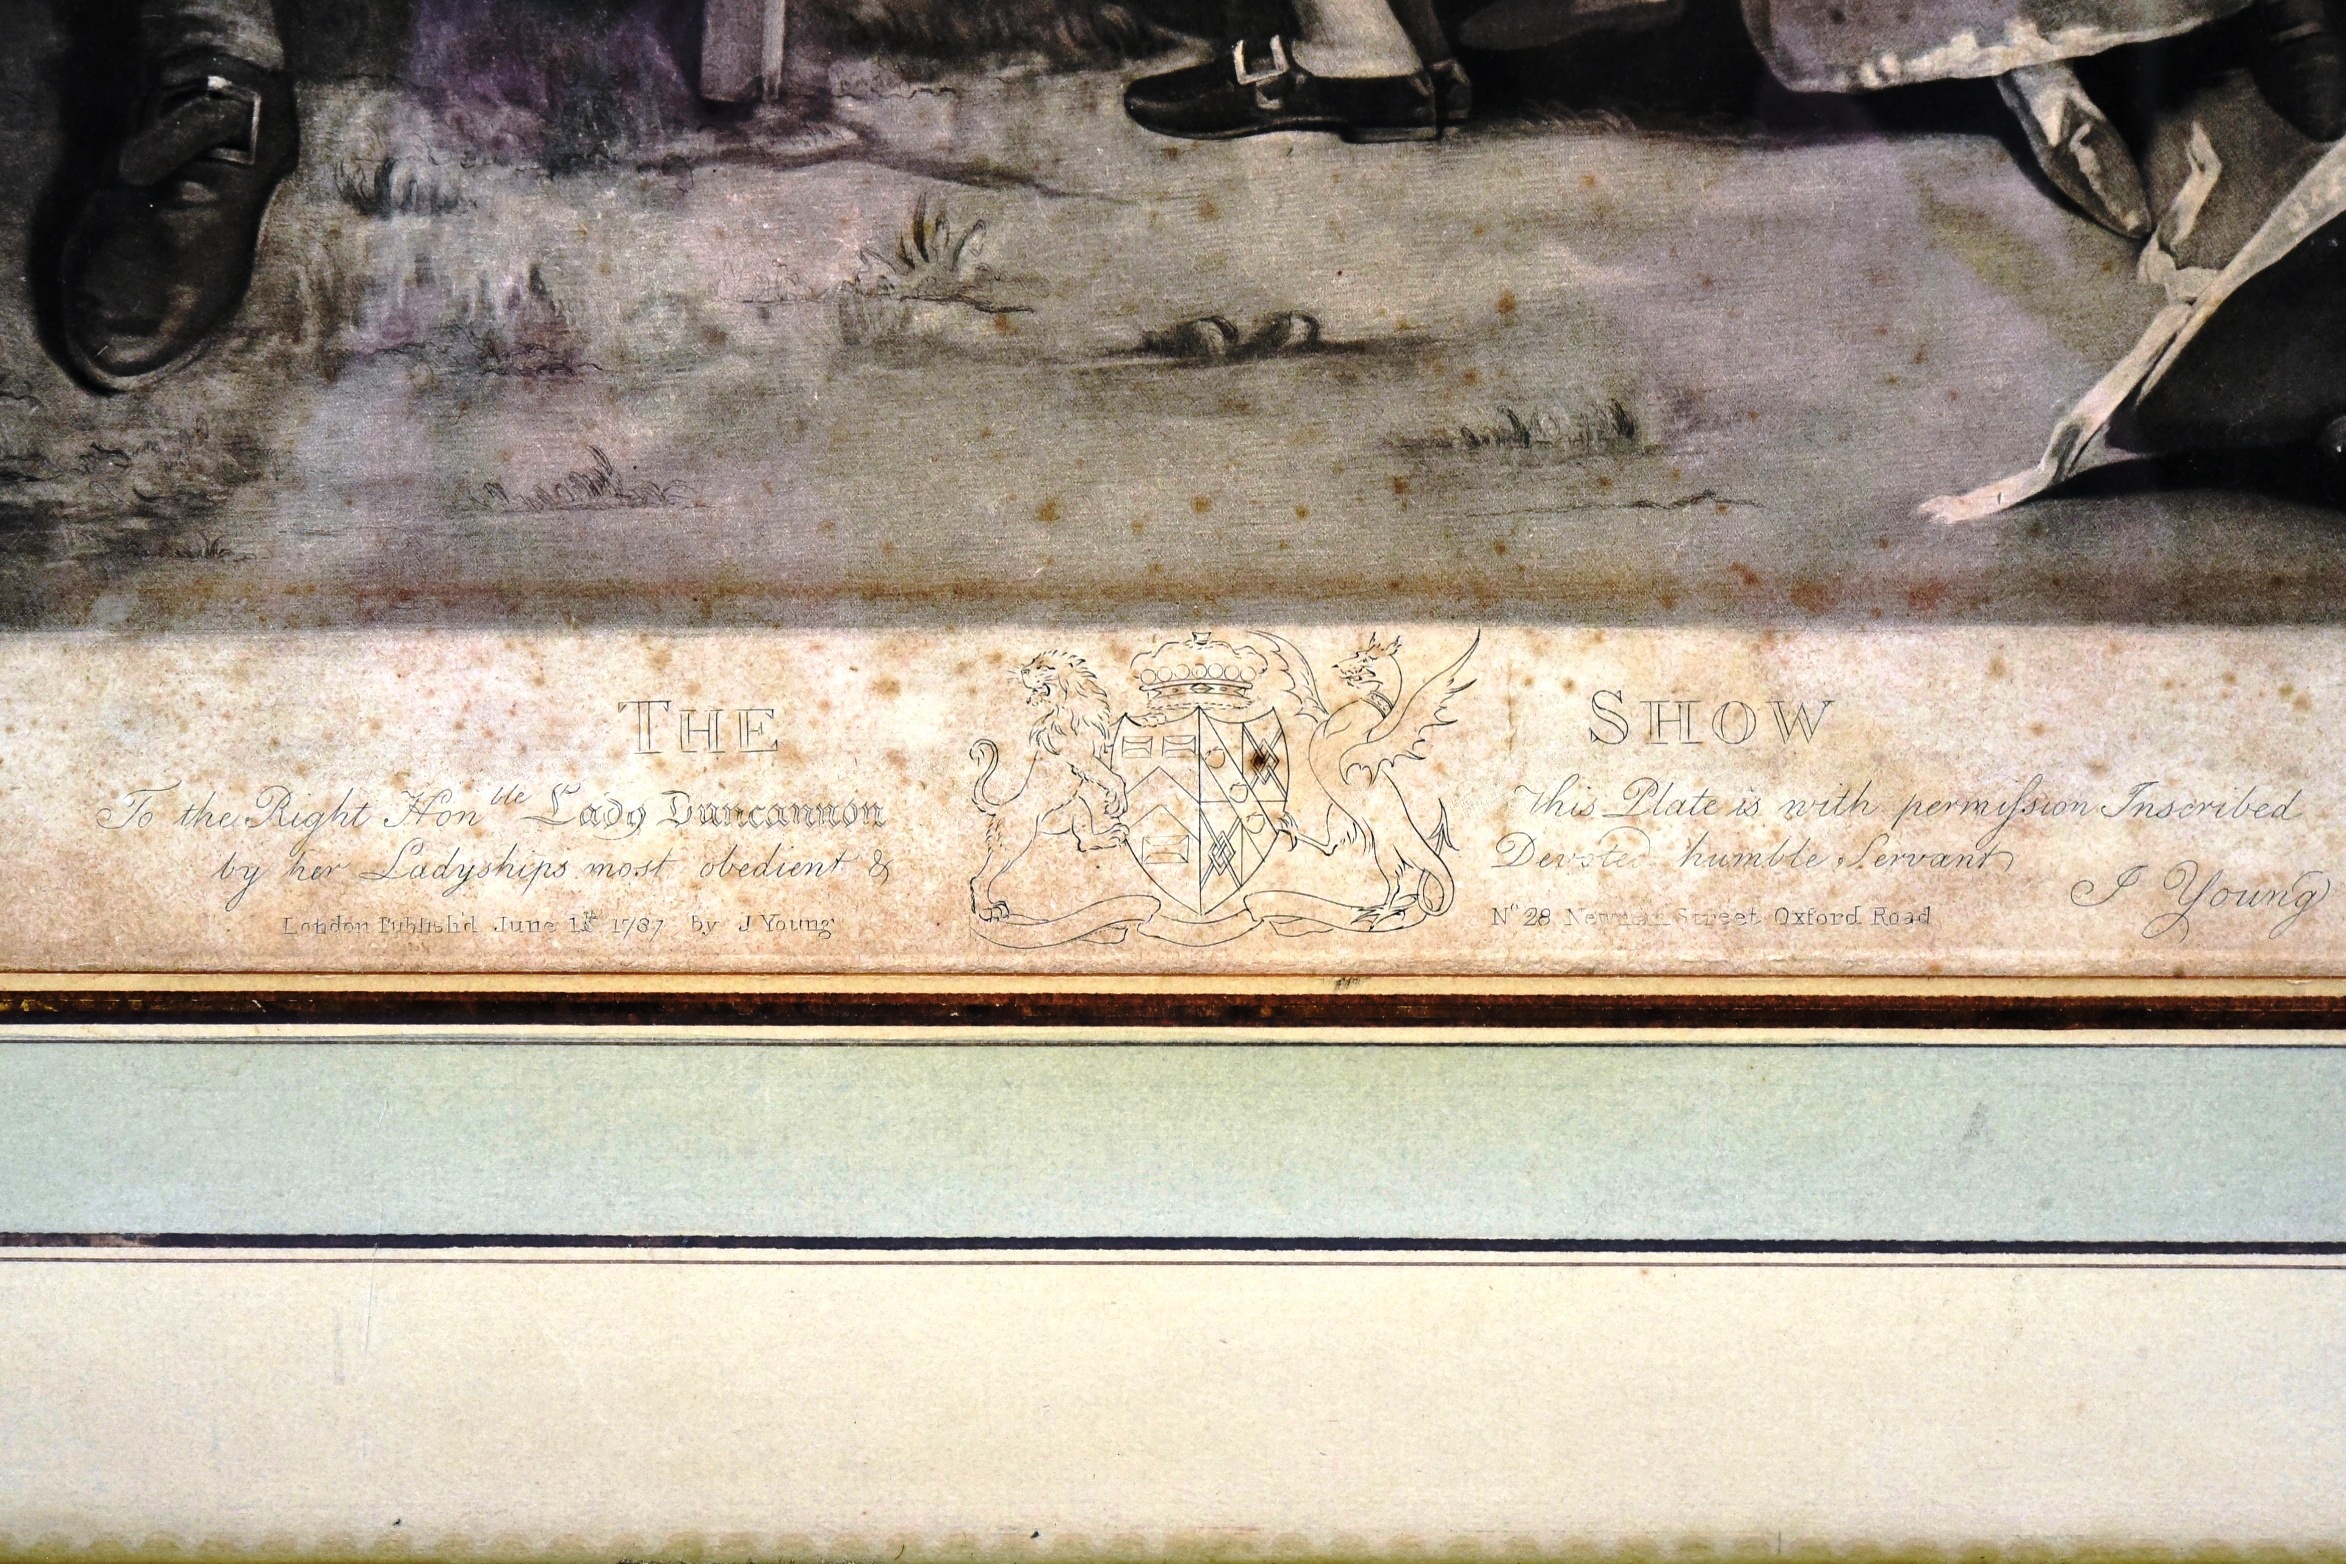 THE SHOW
To the Right Honble Lady Duncannon This Plate is with permiſsion Inscribed
by her Ladyships most obedient & Devoted humble Servant
J Young
London Publish'd June 1st 1787 by J Young No 28 Newman Street Oxford Road